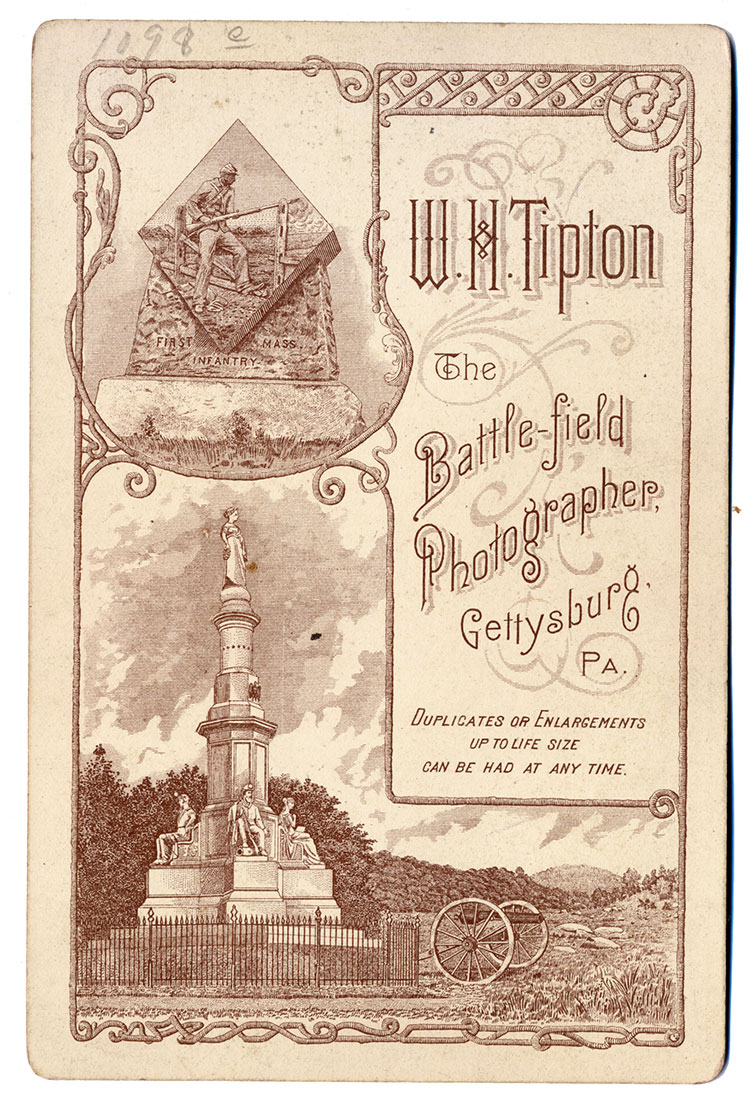 1098 e
FIRST MASS.
INFANTRY.
W.H.Tipton
The
Battle-field
Photographer,
Gettysburg,
PA.
DUPLICATES OR ENLARGEMENTS
UP TO LIFE SIZE
CAN BE HAD AT ANY TIME.